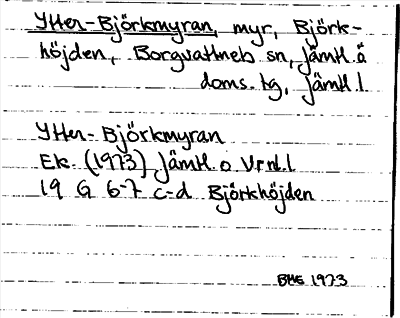 Ytter-Björkmyran, myr, Björk-
höjden, Borgvattnets sn, Jämtl. ö
doms. tg, Jämtl. l.
Ytter-Björkmyran
Ek. (1973) Jämtl. o. Vrnl. l
19 G 6-7 c-d Björkhöjden
1973